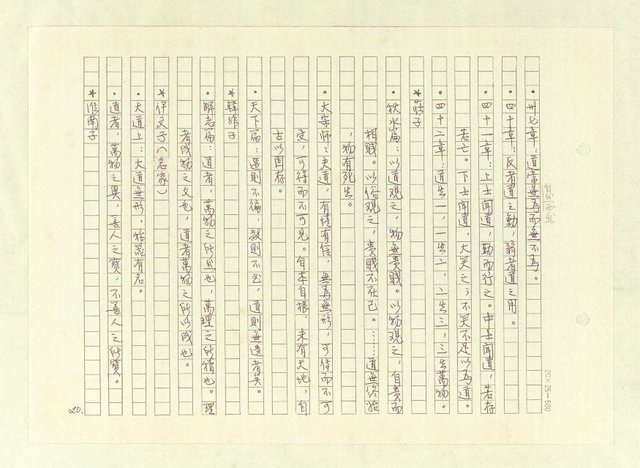 •卅七章：道常無為而無不為。
•四十章：反者道之動，弱者道之用。
•四十一章：上士聞道，勤而行之。中士聞道，若存
若亡。下士聞道，大笑之；不笑不足以為道。
•四十二章：道生一，一生二，二生三，三生萬物。
*莊子
•秋水篇：以道觀之，物無貴賤。以物觀之，自貴而
相賤。以俗觀之，貴賤不在己。……道無終始
，物有死生。
•大宗師：夫道，有情有信，無為無形，可傳而不可
受，可得而不可見。自本自根，未有天地，自
古以固存。
•天下篇：選則不徧，教則不至，道則無遺者矣。
*韓非子
•解老篇：道者，萬物之所然也，萬理之所稽也。理
者成物之文也，道者萬物之所以成也。
*伊文子（名家）
•大道上：大道無形，稱器有名。
•道者，萬物之奧，善人之寶，不善人之所寶。
*淮南子
20.
20×25=500